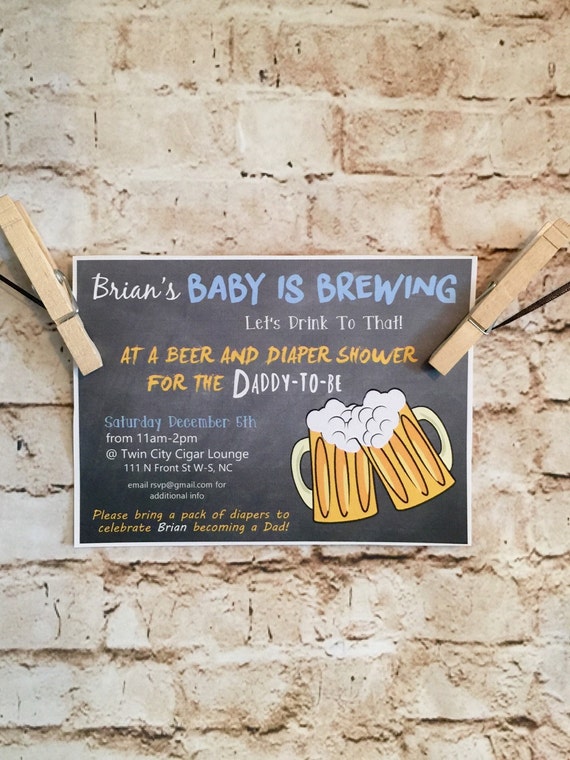 Brian's BABY IS BREWING
Let's Drink To That!
AT A BEER AND DIAPER SHOWER
FOR THE DADDY-TO-BE
Saturday December 5th
from 11am-2pm
@ Twin City Cigar Lounge
111 N Front St W-S, NC
email rsvp@gmail.com for
additional info
Please bring a pack of diapers to
celebrate Brian becoming a Dad!